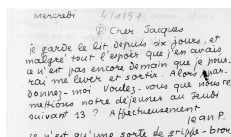 mercredi 4/1/57
Cher Jacques
je garde le lit depuis six jours, et
malgré tout l'espoir que j'en avais
ce n'est pas encore demain que je pour-
rai me lever et sortir. Alors, par-
donnez-moi Voulez-vous que nous re
mettions notre déjeuner au jeudi
suivant 13 ? Affectueusement
jean P.
ce n'est qu'une sorte de grippe-bron